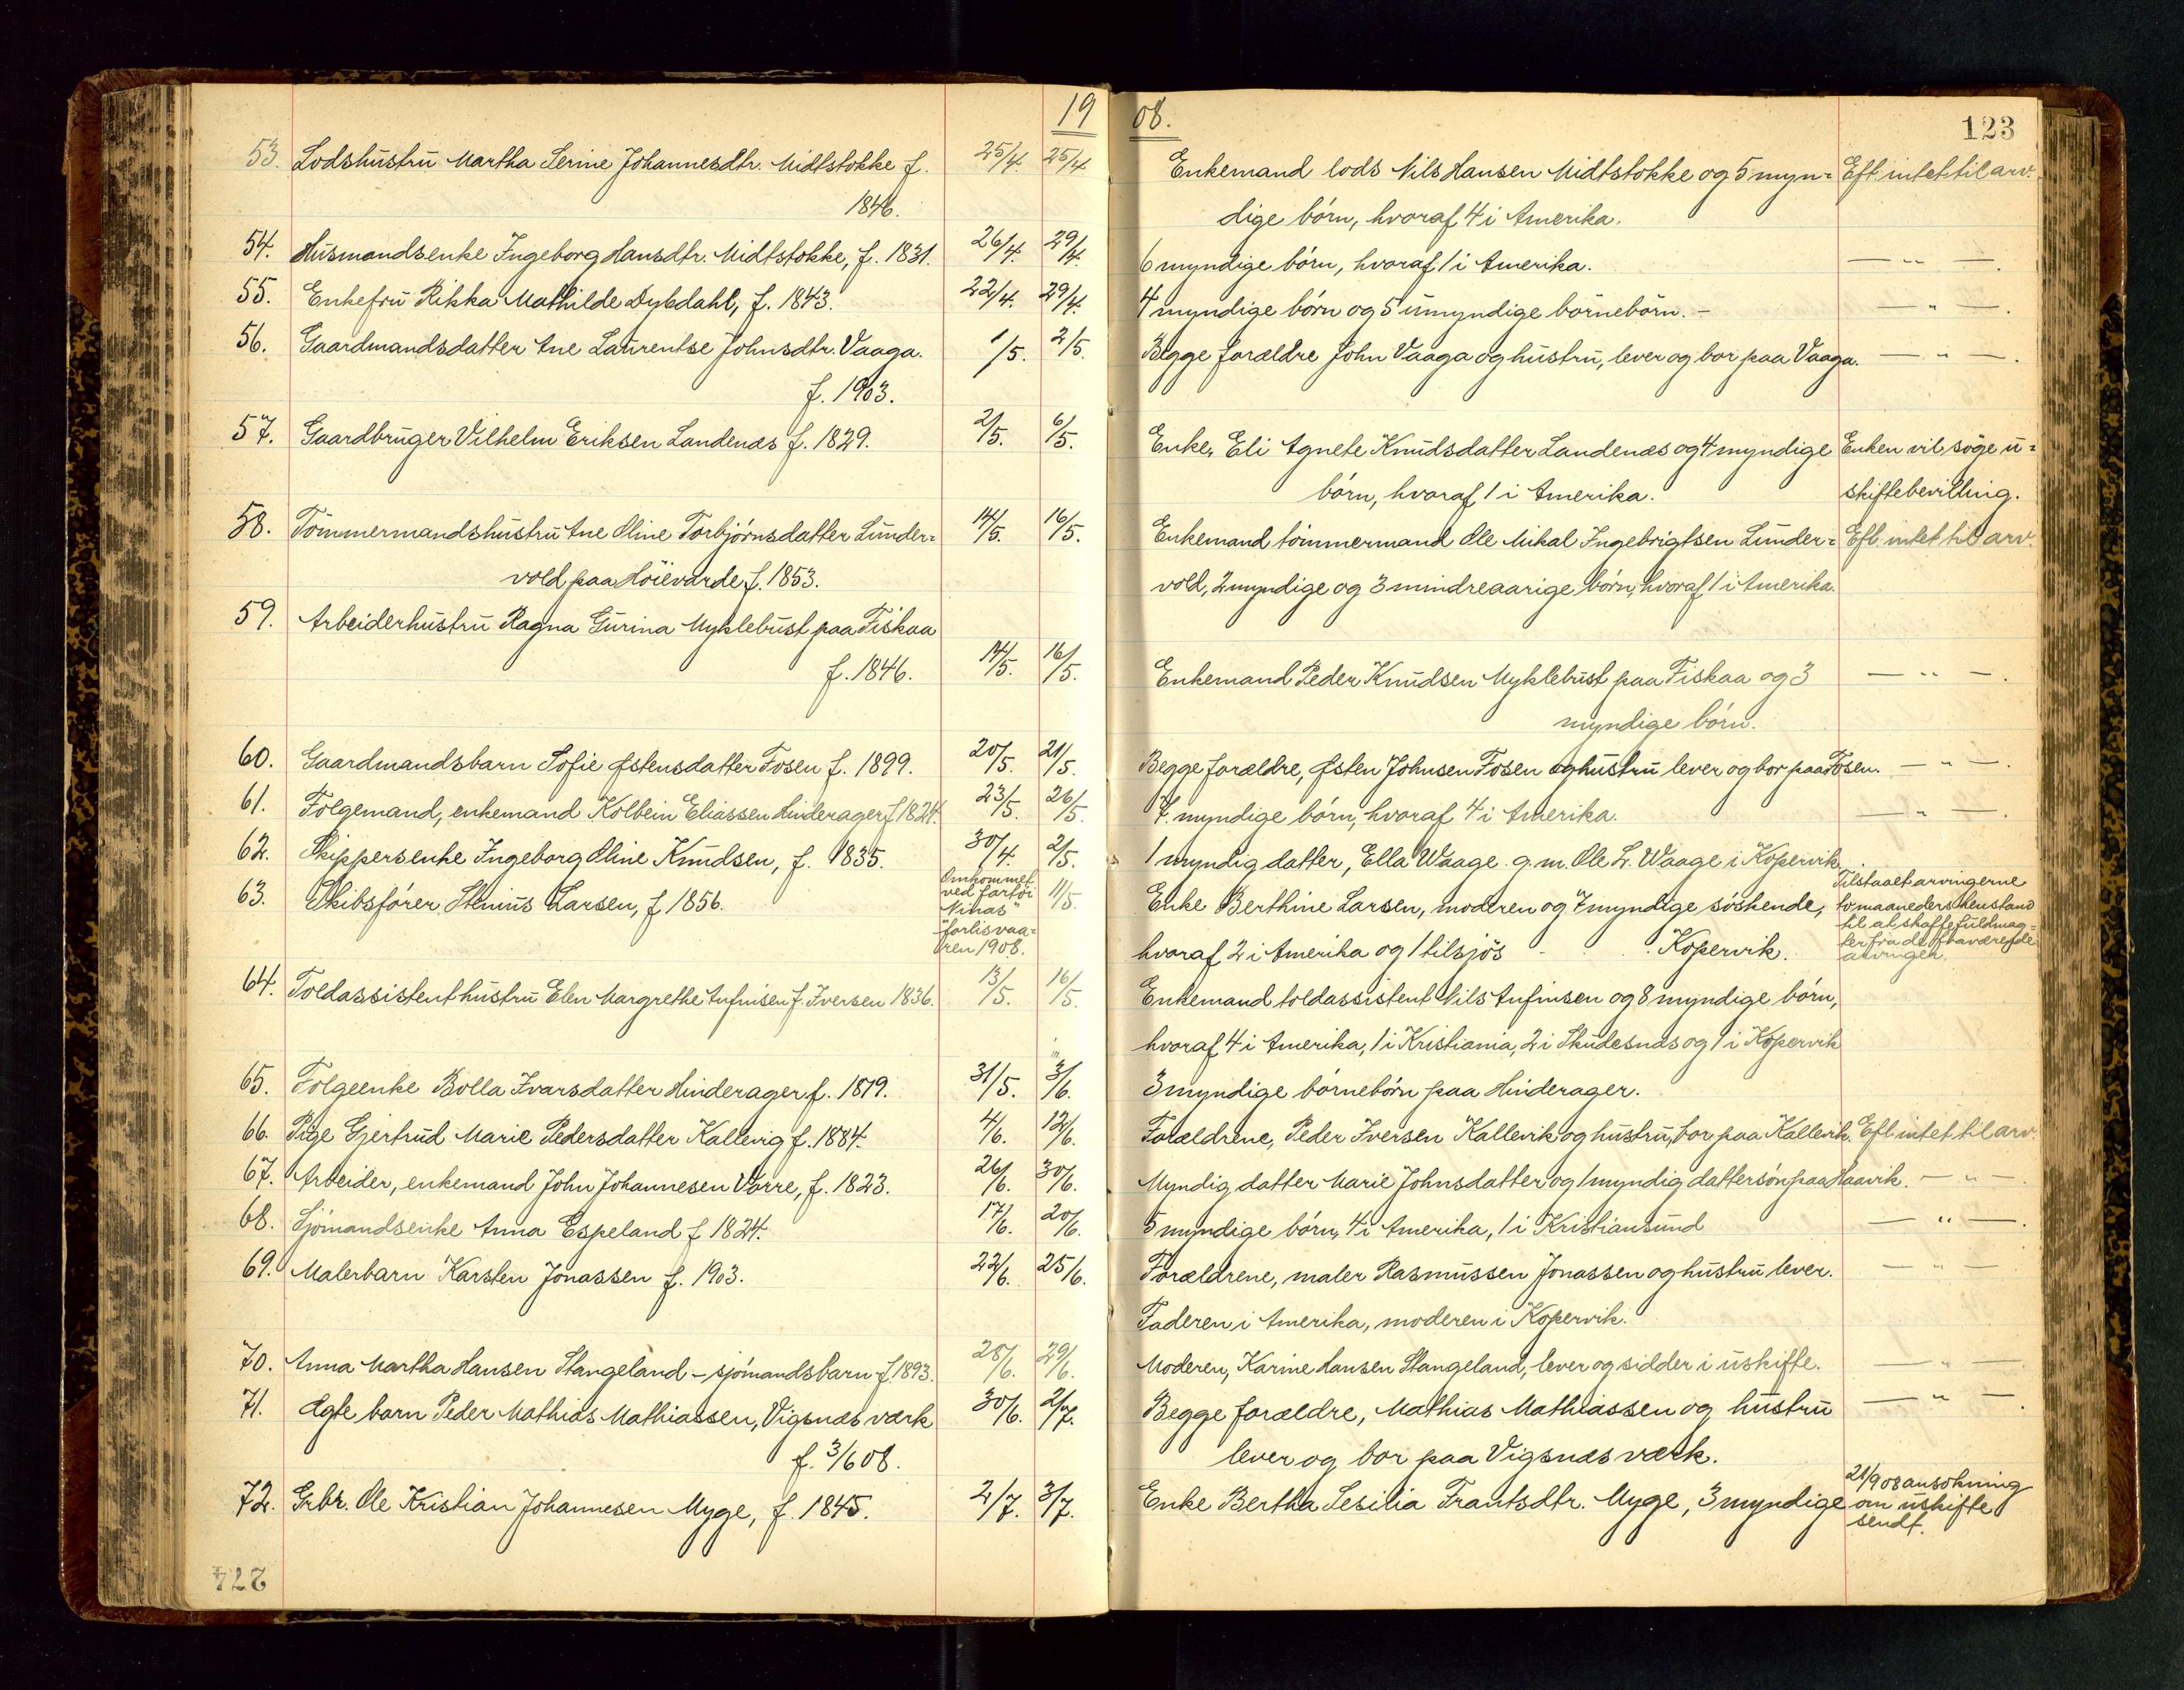 1908.
123
53. Lodshustru Martha Serine Johannesdtr. Midtstokke f. 25/4. 25/4 Enkemand lods Nils Hansen Midtstokke og 5 myn= Eft. intet til arv.
1846. dige børn, hvoraf 4 i Amerika.
54. Husmandsenke Ingeborg Hansdtr. Midtstokke, f. 1831. 26/4. 29/4. 6 myndige børn, hvoraf 1 i Amerika. — " —.
55. Enkefru Rikka Mathilde Dybdahl, f. 1843. 22/4. 29/4. 4 myndige børn og 5 umyndige børnebørn. - — " —.
56. Gaardmandsdatter Ane Laurentse Johnsdtr. Vaaga. 1/5. 2/5. Begge forældre John Vaaga og hustru, lever og bor paa Vaaga. — " —.
f. 1903.
57. Gaardbruger Vilhelm Eriksen Landenæs f. 1829. 2/5. 6/5. Enke, Eli Agnete Knudsdatter Landenæs og 4 myndige Enken vil søge u=
børn, hvoraf 1 i Amerika. skiftebevilling.
58. Tømmermandshustru Ane Oline Torbjørnsdatter Lunder= 14/5. 16/5. Enkemand tømmermand Ole Mikal Ingebrigtsen Lunder= Eft. intet til arv.
vold paa Høievarde f. 1853. vold, 2 myndige og 3 mindreaarige børn, hvoraf 1 i Amerika.
59. Arbeiderhustru Ragna Gurina Myklebust paa Fiskaa
f. 1846. 14/5. 16/5. Enkemand Peder Knudsen Myklebust paa Fiskaa og 3 — " —.
myndige børn.
60. Gaardmandsbarn Sofie Østensdatter Fosen f. 1899. 20/5. 21/5. Begge forældre, Østen Johnsen Fosen og hustru lever og bor paa Fosen. — " —.
61. Følgemand, enkemand Kolbein Eliassen Hinderager f 1824. 23/5. 26/5. 7 myndige børn, hvoraf 4 i Amerika. — " —.
62. Skippersenke Ingeborg Oline Knudsen, f. 1835. 30/4. 2/5. 1 myndig datter, Ella Waage. g. m. Ole L. Waage i Kopervik.
63. Skibsfører Stenius Larsen, f 1856. Omkommet ved fartøi "Ninas" forlis vaa= ren 1908. 11/5. Enke Berthine Larsen, moderen og 7 myndige søskende, Tilstaaet arvingerne to maaneders henstand til at skaffe fuldmag= ter fra de fraværende arvinger.
hvoraf 2 i Amerika og 1 tilsjøs - Kopervik.
64. Toldassistenthustru Elen Margrethe Anfinsen f. Iversen 1836. 13/5. 16/5. Enkemand toldassistent Nils Anfinsen og 8 myndige børn,
hvoraf 4 i Amerika, 1 i Kristiania, 2 i Skudesnæs og 1 i Kopervik
65. Følgeenke Bolla Ivarsdatter Hinderager f. 1819. 31/5. 3/6. 3 myndige børnebørn paa Hinderager.
66. Pige Gjertrud Marie Pedersdatter Kallevig f. 1884. 4/6. 12/6. Forældrene, Peder Iversen Kallevik og hustru, bor paa Kallevik. Eft. intet til arv.
67. Arbeider, enkemand John Johannesen Vorre, f. 1823. 26/6. 30/6. Myndig datter Marie Johnsdatter og 1 myndig dattersøn paa Haavik. — " —.
68. Sjømandsenke Anna Espeland f 1824. 17/6. 20/6. 5 myndige børn, 4 i Amerika, 1 i Kristiansund — " —.
69. Malerbarn Karsten Jonassen f. 1903. 22/6. 25/6. Forældrene, maler Rasmussen Jonassen og hustru lever. — " —
Faderen i Amerika, moderen i Kopervik.
70. Anna Martha Hansen Stangeland - sjømandsbarn f. 1893. 28/6. 29/6. Moderen, Karine Hansen Stangeland, lever og sidder i uskifte. — " —
71. Ægte barn Peder Mathias Mathiassen, Vigsnæs værk 30/6. 2/7. Begge forældre, Mathias Mathiassen og hustru — " —.
f. 3/6 08. lever og bor paa Vigsnæs værk.
72. Grbr. Ole Kristian Johannesen Myge, f. 1845. 2/7. 3/7. Enke Bertha Sesilia Frantsdtr. Myge, 3 myndige 21/9 08 ansøkning om uskifte sendt.
274